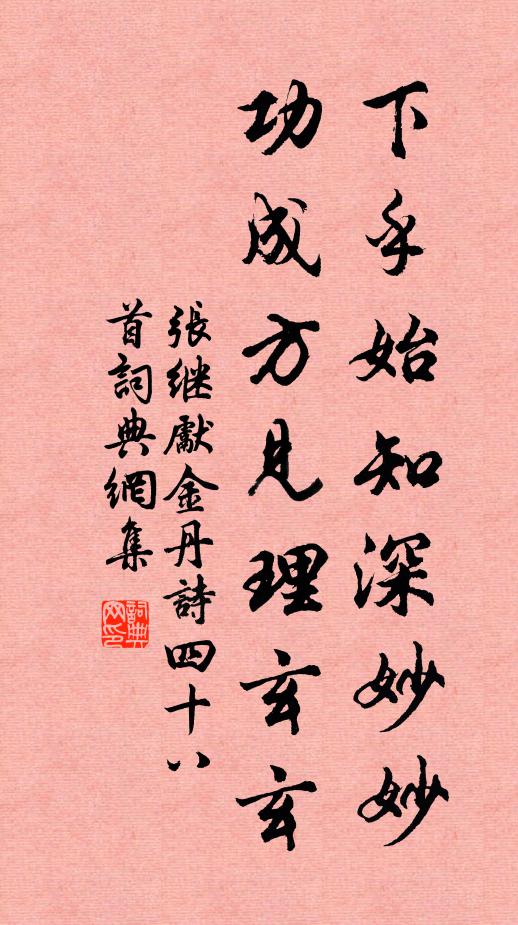 下手始知深妙妙
功成方見理玄玄
張継獻金丹詩四十八
首詞典網集
詞典
网印